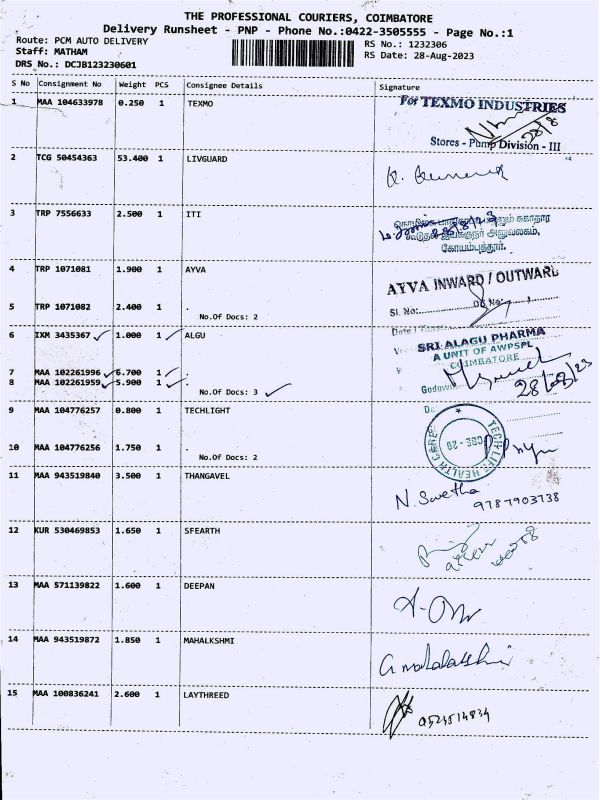 THE PROFESSIONAL COURIERS, COIMBATORE
Delivery Runsheet - PNP - Phone No.:0422-3505555 - Page No.:1
Route: PCM AUTO DELIVERY
Staff: MATHAM
DRS No.: DCJB123230601
RS No.: 1232306
RS Date: 28-Aug-2023
S No Consignment No Weight PCS Consignee Details Signature
1 MAA 104633978 0.250 1 TEXMO
For TEXMO INDUSTRIES
28/8
Stores - Pump Division - III
2 TCG 50454363 53.400 1 LIVGUARD
3 TRP 7556633 2.500 1 ITI
கோயம்புத்தூர்.
4 TRP 1071081 1.900 1 AYVA
AYVA INWARD / OUTWARD
5 TRP 1071082 2.400 1 .
Sl. No:
No.Of Docs: 2
6 IXM 3435367 1.000 1 ALGU
SRI ALAGU PHARMA
A UNIT OF AWPSPL
COIMBATORE
7 MAA 102261996 6.700 1 .
8 MAA 102261959 5.900 1 .
No.Of Docs: 3
Godown
28/08/23
9 MAA 104776257 0.800 1 TECHLIGHT
TECHLIFE HEALTH CARE
CBE - 20
10 MAA 104776256 1.750 1 .
No.Of Docs: 2
11 MAA 943519840 3.500 1 THANGAVEL
N. Swetha
9787903738
12 KUR 530469853 1.650 1 SFEARTH
13 MAA 571139822 1.600 1 DEEPAN
14 MAA 943519872 1.850 1 MAHALKSHMI
15 MAA 100836241 2.600 1 LAYTHREED